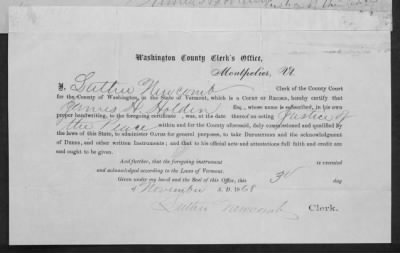 Washington County Clerk's Office,
Montpelier, Vt.
I, Luther Newcomb Clerk of the County Court
for the County of Washington, in the State of Vermont, which is a Court of Record, hereby certify that
James H. Holden Esq., whose name is subscribed, in his own
proper handwriting, to the foregoing certificate, was, at the date thereof an acting Justice of
the Peace within and for the County aforesaid, duly commissioned and qualified by
the laws of this State, to administer Oaths for general purposes, to take Depositions and the acknowledgment
of Deeds, and other written Instruments; and that to his official acts and attestations full faith and credit are
and ought to be given.
And further, that the foregoing instrument is executed
and acknowledged according to the Laws of Vermont.
Given under my hand and the Seal of this Office, this 3d day
of November A. D. 1868
Luther Newcomb Clerk.